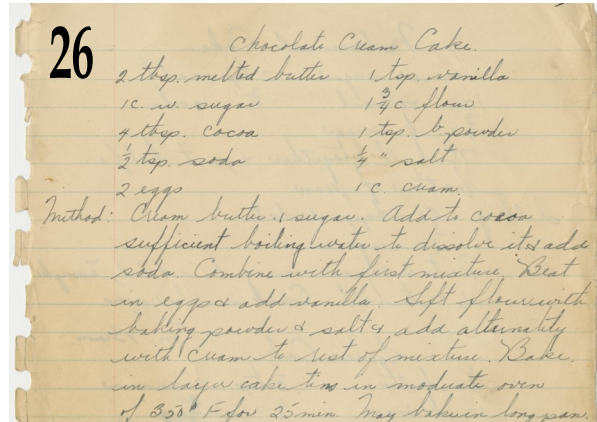 26
Chocolate Cream Cake.
2 tbsp. melted butter 1 tsp. vanilla
1 c. w. sugar 1 3/4 c flour
4 tbsp. cocoa 1 tsp. b. powder
1/2 tsp. soda 1/4 " salt
2 eggs 1 c. cream.
Method: Cream butter & sugar. Add to cocoa
sufficient boiling water to dissolve it & add
soda. Combine with first mixture. Beat
in eggs & add vanilla. Sift flour with
baking powder & salt & add alternately
with cream to rest of mixture. Bake
in layer cake tins in moderate oven
of 350° F for 25 min. May bake in long pan.